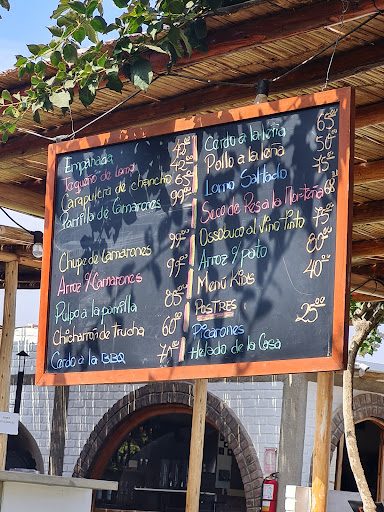 Empanada
Taqueño de Lomo
Carapulcra de chancho 65
Parrilla de Camarones 99⁰⁰
Chupe de Camarones 99⁰⁰
Arroz c/ Camarones 99⁰⁰
Pulpo a la parrilla 85⁰⁰
Chicharrón de trucha 60⁰⁰
Cerdo a la BBQ 75⁰⁰
Cerdo a la leña 65⁰⁰
Pollo a la leña 50⁰⁰
Lomo Saltado 75⁰⁰
Seco de Res a la Norteña 68
Ossobuco al Vino Tinto 75⁰⁰
Arroz c/ pato 80⁰⁰
Menú Kids 40⁰⁰
Postres
Picarones 25⁰⁰
Helado de la Casa